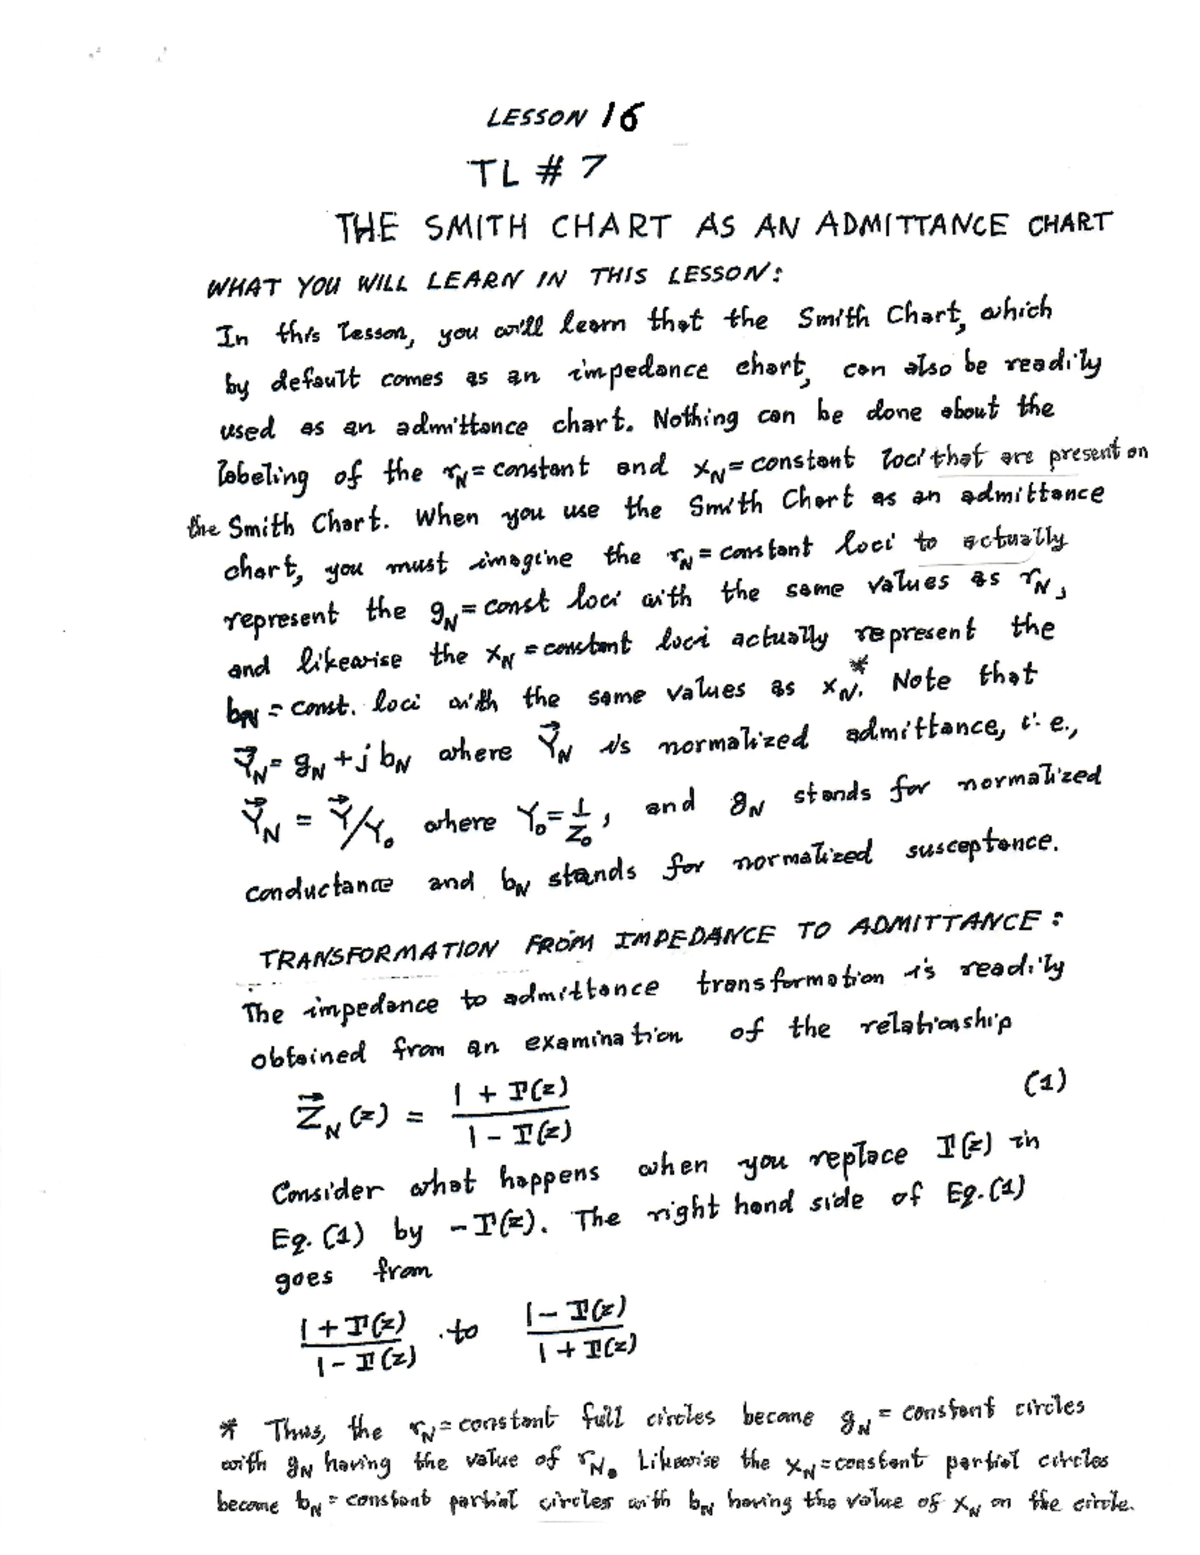 LESSON 16
TL # 7
THE SMITH CHART AS AN ADMITTANCE CHART
WHAT YOU WILL LEARN IN THIS LESSON:
In this lesson, you will learn that the Smith Chart, which
by default comes as an impedance chart, can also be readily
used as an admittance chart. Nothing can be done about the
labeling of the r_N = constant and x_N = constant loci that are present on
the Smith Chart. When you use the Smith Chart as an admittance
chart, you must imagine the r_N = constant loci to actually
represent the g_N = const loci with the same values as r_N,
and likewise the x_N = constant loci actually represent the
b_N = const. loci with the same values as x_N.* Note that
Y⃗_N = g_N + j b_N where Y⃗_N is normalized admittance, i.e.,
Y⃗_N = Y⃗/Y_0 where Y_0 = 1/Z_0, and g_N stands for normalized
conductance and b_N stands for normalized susceptance.
TRANSFORMATION FROM IMPEDANCE TO ADMITTANCE:
The impedance to admittance transformation is readily
obtained from an examination of the relationship
Z⃗_N (z) = (1 + Γ(z)) / (1 - Γ(z)) (1)
Consider what happens when you replace Γ(z) in
Eq. (1) by -Γ(z). The right hand side of Eq. (1)
goes from
(1 + Γ(z)) / (1 - Γ(z)) to (1 - Γ(z)) / (1 + Γ(z))
* Thus, the r_N = constant full circles become g_N = constant circles
with g_N having the value of r_N. Likewise the x_N = constant partial circles
become b_N = constant partial circles with b_N having the value of x_N on the circle.